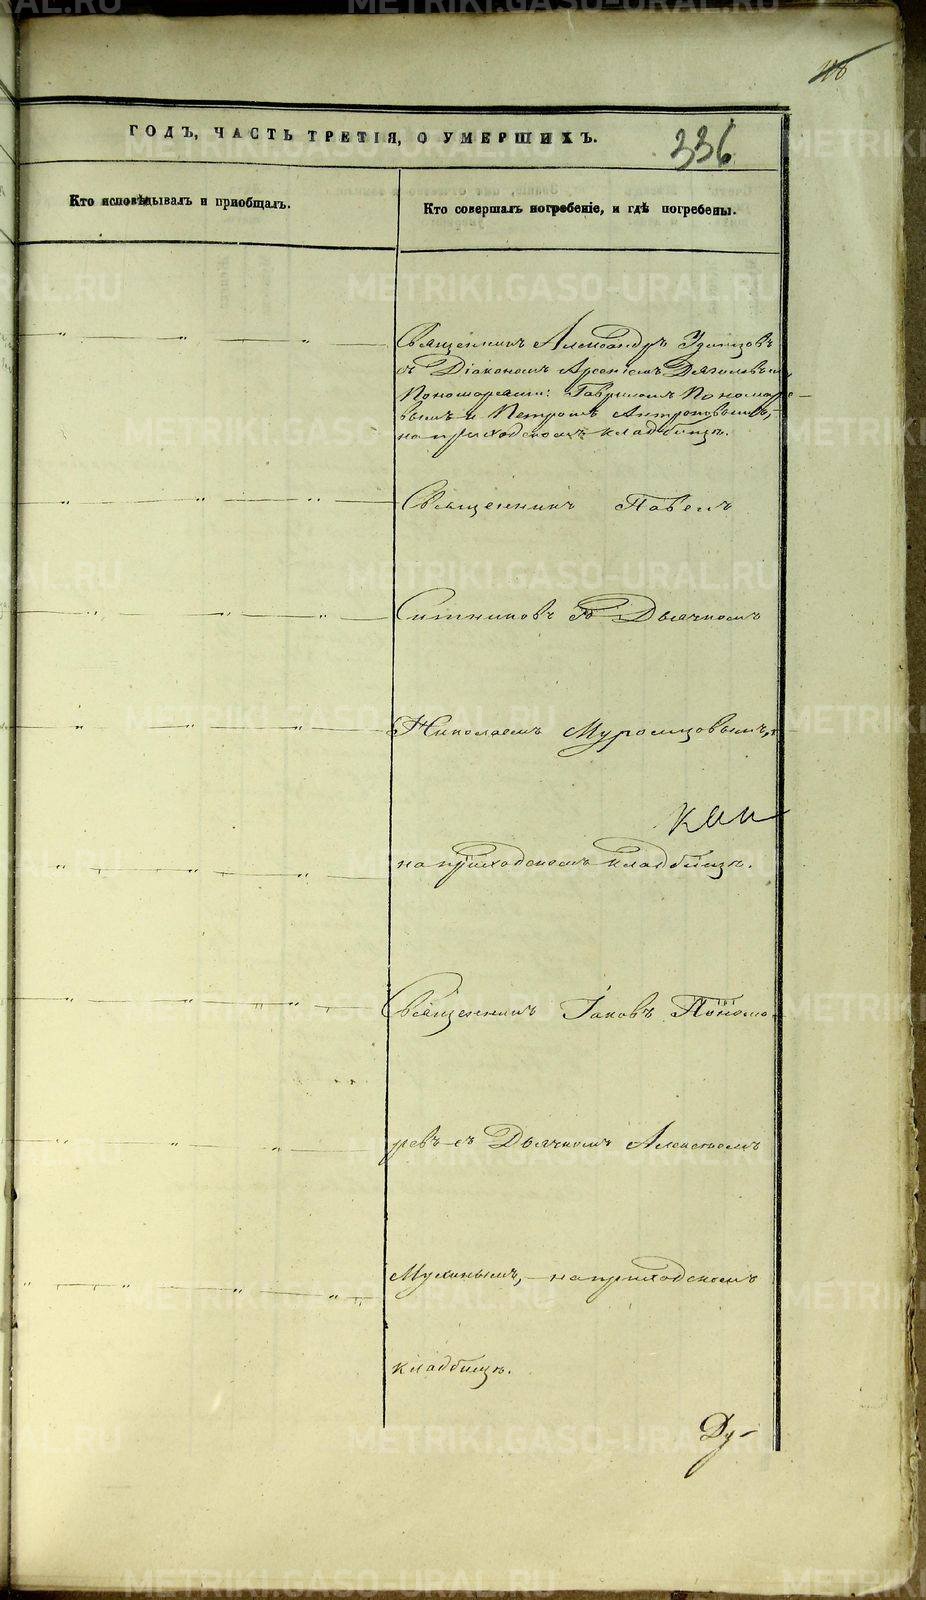 336
ГОДЪ, ЧАСТЬ ТРЕТІЯ, О УМЕРШИХЪ.
Кто исповѣдывалъ и пріобщалъ.
Кто совершалъ погребеніе, и гдѣ погребены.
Священникъ Александръ Удинцовъ
съ Діакономъ Арсеніемъ
Пономарями: Гавріиломъ Пономаре-
вымъ и Петромъ Антроповымъ,
на приходскомъ кладбищѣ.
Священникъ Павелъ
Ситниковъ съ Дьячкомъ
Николаемъ Муромцовымъ,
на приходскомъ кладбищѣ.
Священникъ Іаковъ Понома-
ревъ съ Дьячкомъ Алексѣемъ
Мухинымъ, на приходскомъ
кладбищѣ.
Ду-
METRIKI.GASO-URAL.RU